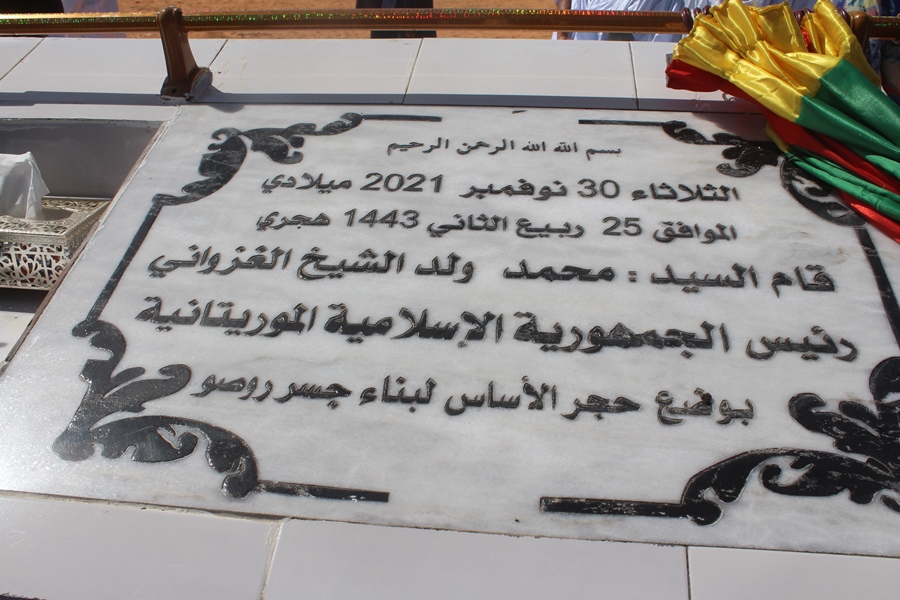 بسم الله الله الرحمن الرحيم
الثلاثاء 30 نوفمبر 2021 ميلادي
الموافق 25 ربيع الثاني 1443 هجري
قام السيد : محمد ولد الشيخ الغزواني
رئيس الجمهورية الإسلامية الموريتانية
بوضع حجر الأساس لبناء جسر روصو